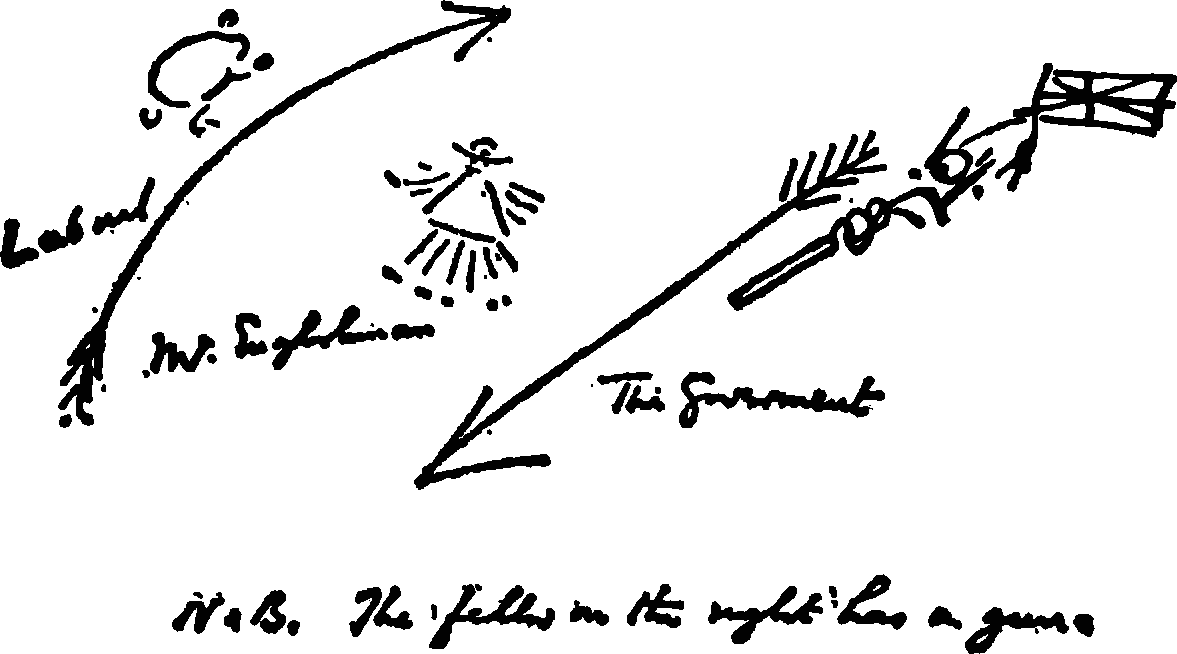 Labour
Mr. Englishman
The Government
N.B. The 'fellow on the right' has a gun.